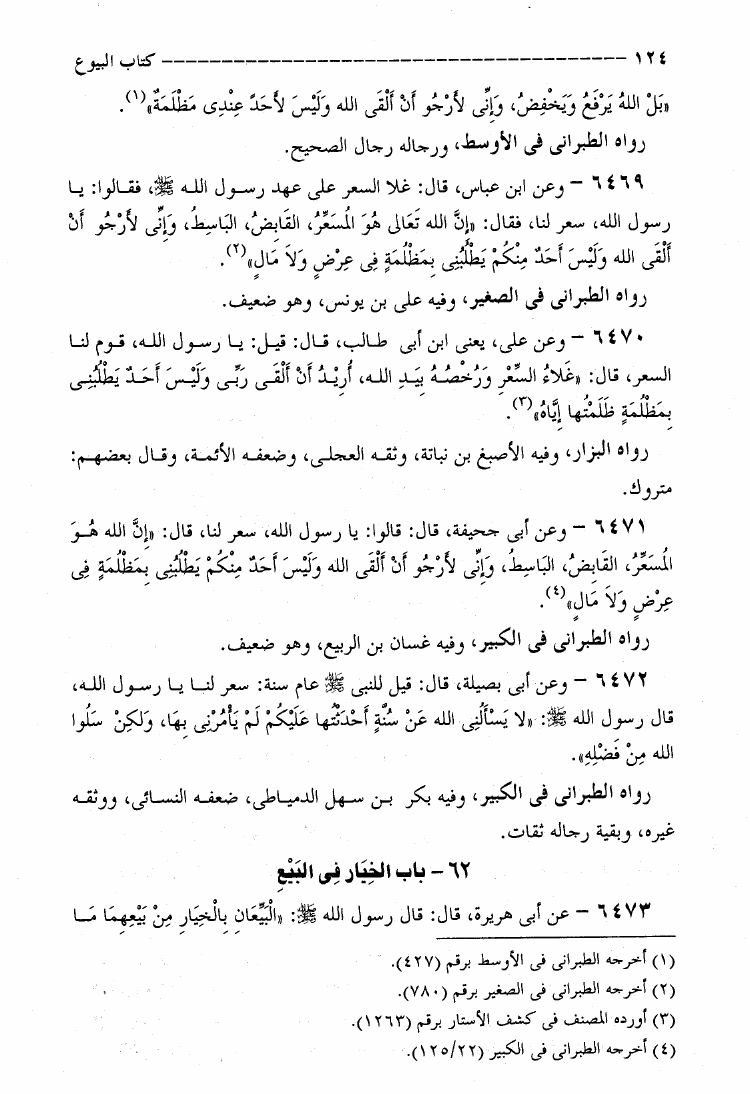 ١٢٤ ------------------------------------------- كتاب البيوع
«بَلْ اللهُ يَرْفَعُ وَيَخْفِضُ، وَإِنِّى لأَرْجُو أَنْ أَلْقَى الله وَلَيْسَ لأَحَدٍ عِنْدِى مَظْلَمَةٌ»(١).
رواه الطبرانى فى الأوسط، ورجاله رجال الصحيح.
٦٤٦٩ – وعن ابن عباس، قال: غلا السعر على عهد رسول الله ﷺ، فقالوا: يا
رسول الله، سعر لنا، فقال: «إِنَّ الله تَعَالى هُوَ المُسَعِّرُ، القَابِضُ، البَاسِطُ، وَإِنِّى لأَرْجُو أَنْ
أَلْقَى الله وَلَيْسَ أَحَدٌ مِنْكُمْ يَطْلُبُنِى بِمَظْلِمَةٍ فِى عِرْضٍ وَلاَ مَالٍ»(٢).
رواه الطبرانى فى الصغير، وفيه على بن يونس، وهو ضعيف.
٦٤٧٠ – وعن على، يعنى ابن أبى طالب، قال: قيل: يا رسول الله، قوم لنا
السعر، قال: «غَلاَءُ السِّعْرِ وَرُخْصُهُ بِيَدِ الله، أُرِيْدُ أَنْ أَلْقَى رَبِّى وَلَيْسَ أَحَدٌ يَطْلُبُنِى
بِمَظْلُمَةٍ ظَلَمْتُها إِيَّاهُ»(٣).
رواه البزار، وفيه الأصبغ بن نباتة، وثقه العجلى، وضعفه الأئمة، وقال بعضهم:
متروك.
٦٤٧١ – وعن أبى جحيفة، قال: قالوا: يا رسول الله، سعر لنا، قال: «إِنَّ الله هُوَ
المُسَعِّرُ، القَابِضُ، البَاسِطُ، وَإِنِّى لأَرْجُو أَنْ أَلْقَى الله وَلَيْسَ أَحَدٌ مِنْكُمْ يَطْلُبُنِى بِمَظْلُمَةٍ فِى
عِرْضٍ وَلاَ مَالٍ»(٤).
رواه الطبرانى فى الكبير، وفيه غسان بن الربيع، وهو ضعيف.
٦٤٧٢ – وعن أبى بصيلة، قال: قيل للنبى ﷺ عام سنة: سعر لنا يا رسول الله،
قال رسول الله ﷺ: «لا يَسْأَلُنِى الله عَنْ سُنَّةٍ أَحْدَثْتُها عَلَيْكُمْ لَمْ يَأْمُرْنِى بِهَا، وَلكِنْ سَلُوا
الله مِنْ فَضْلِهِ».
رواه الطبرانى فى الكبير، وفيه بكر بن سهل الدمياطى، ضعفه النسائى، ووثقه
غيره، وبقية رجاله ثقات.
٦٢ – باب الخِيَار فِى البَيْعِ
٦٤٧٣ – عن أبى هريرة، قال: قال رسول الله ﷺ: «الْبَيِّعَانِ بِالْخِيَارِ مِنْ بَيْعِهِمَا مَا
(١) أخرجه الطبرانى فى الأوسط برقم (٤٢٧).
(٢) أخرجه الطبرانى فى الصغير برقم (٧٨٠).
(٣) أورده المصنف فى كشف الأستار برقم (١٢٦٣).
(٤) أخرجه الطبرانى فى الكبير (١٢٥/٢٢).